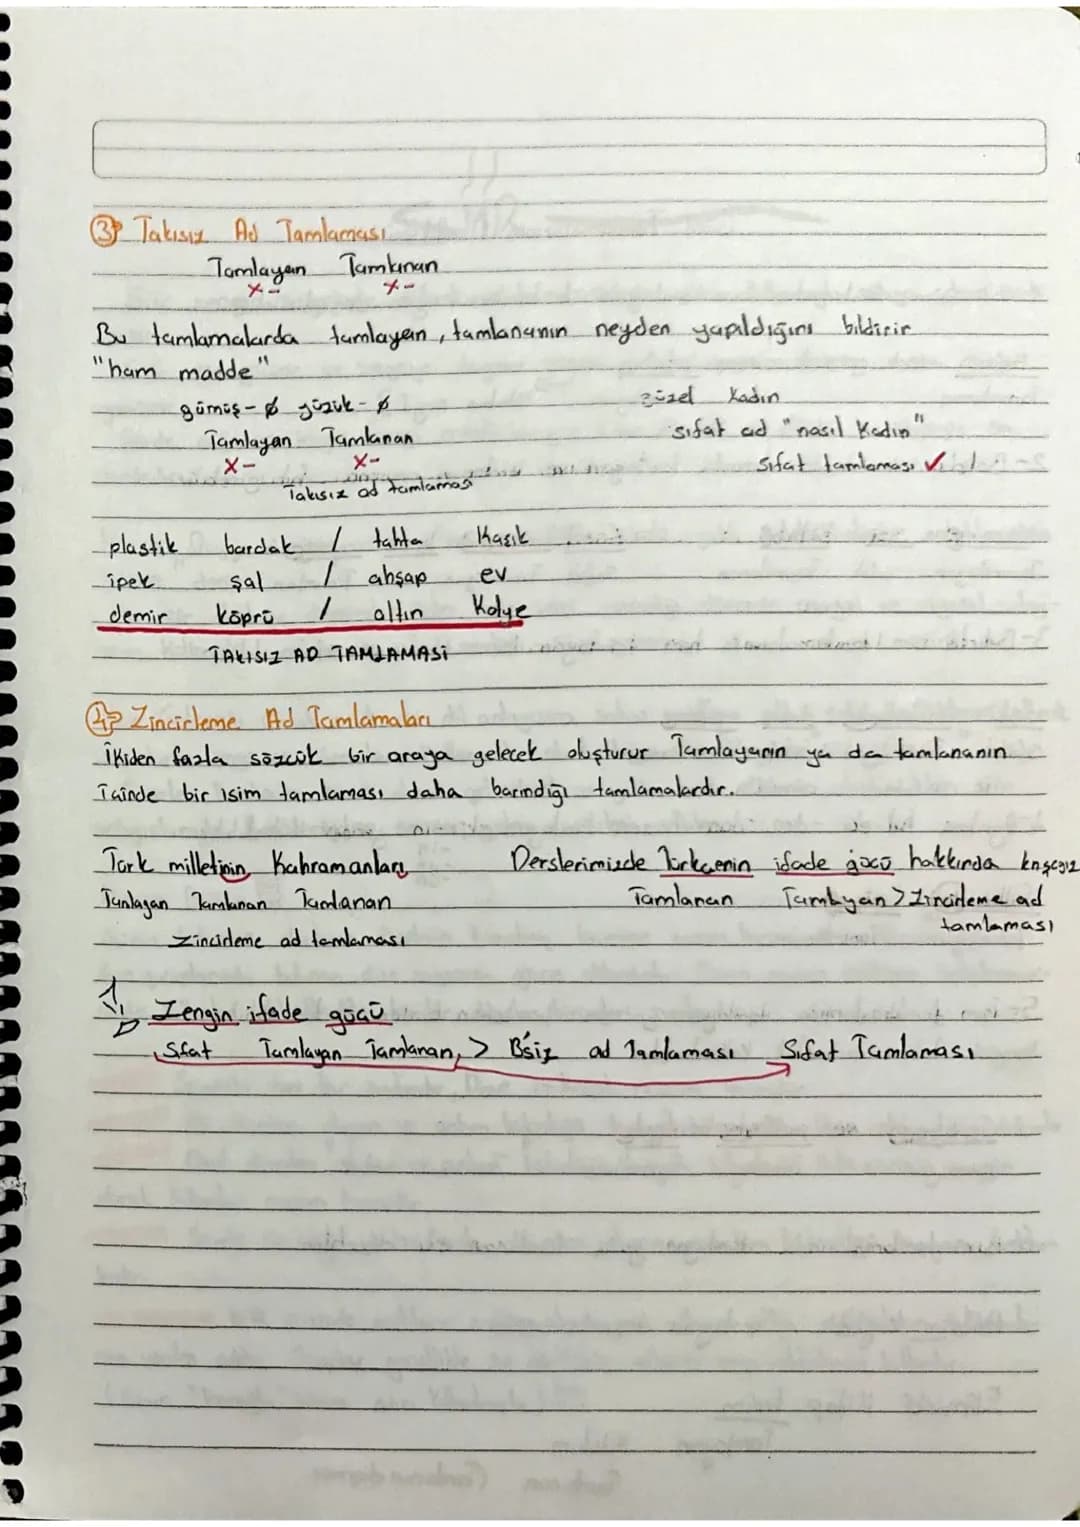 3) Takısız Ad Tamlaması
Tamlayan Tamlanan
x- x-
Bu tamlamalarda tamlayan, tamlananın neyden yapıldığını bildirir
"ham madde"
gümüş-ø yüzük-ø
Tamlayan Tamlanan
x- x-
Takısız ad tamlaması
güzel kadın
sıfat ad "nasıl kadın"
sıfat tamlaması ✓
plastik bardak / tahta kaşık
ipek şal / ahşap ev
demir köprü / altın kolye
TAKISIZ AD TAMLAMASI
4) Zincirleme Ad Tamlamaları
İkiden fazla sözcük bir araya gelecek oluşturur Tamlayanın ya da tamlananın
içinde bir isim tamlaması daha barındığı tamlamalardır.
Türk milletinin Kahramanları
Tamlayan Tamlanan Tamlanan
zincirleme ad tamlaması
Derslerimizde Türkçenin ifade gücü hakkında
Tamlanan Tamlayan > Zincirleme ad
tamlaması
Zengin ifade gücü
Sıfat Tamlayan Tamlanan > B'siz ad Tamlaması Sıfat Tamlaması